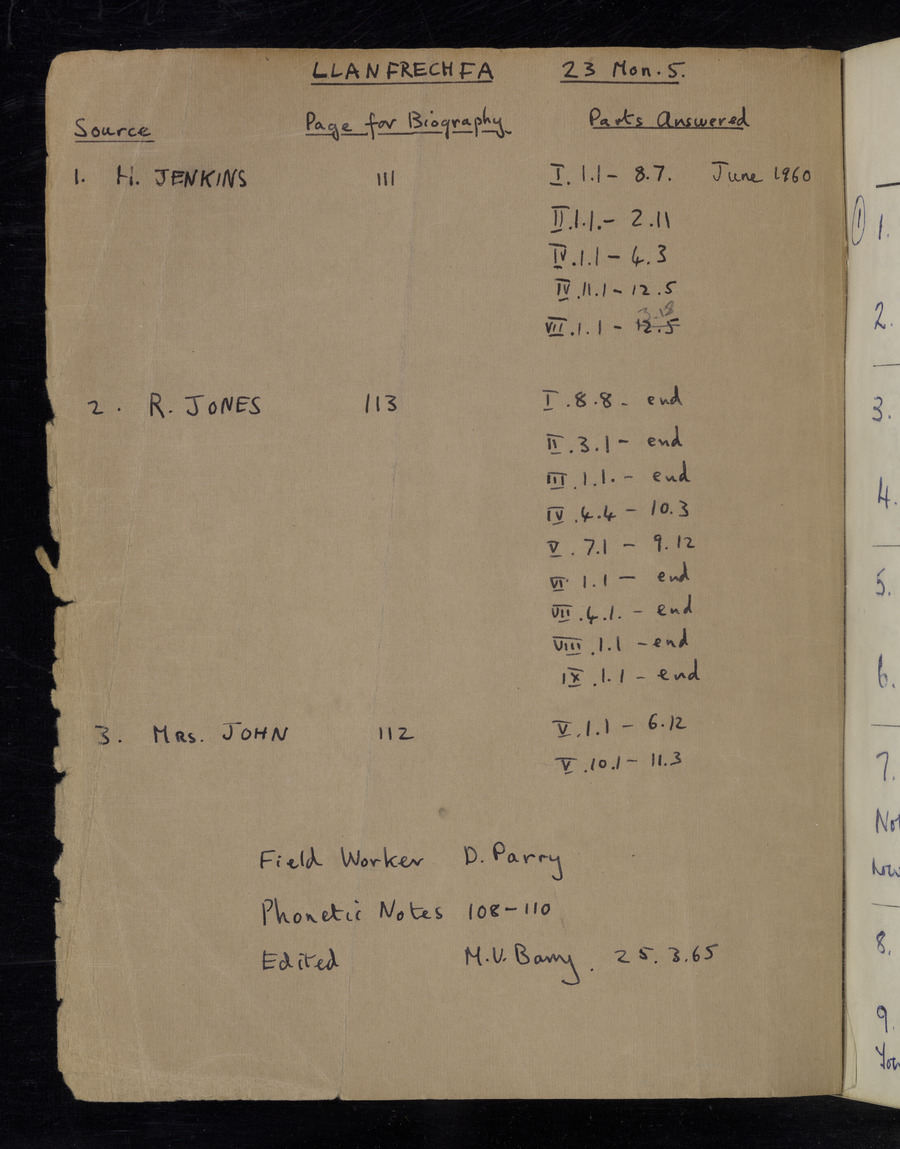 LLANFRECHFA 23 Mon. 5.
Source Page for Biography Parts Answered
1. H. JENKINS 111 I. 1.1 - 8.7. June 1960
II.1.1. - 2.11
IV.1.1 - 4.3
IV.11.1 - 12.5
3.18
VII.1.1 - 12.5
2. R. JONES 113 I.8.8 - end
II.3.1 - end
III.1.1. - end
IV.4.4 - 10.3
V.7.1 - 9.12
VI 1.1 - end
VII.4.1. - end
VIII.1.1 - end
IX.1.1 - end
3. MRS. JOHN 112 V.1.1 - 6.12
V.10.1 - 11.3
Field Worker D. Parry
Phonetic Notes 108-110
Edited M.V. Barry. 25.3.65
1 1.
2.
3.
4.
5.
6.
7.
8.
9.